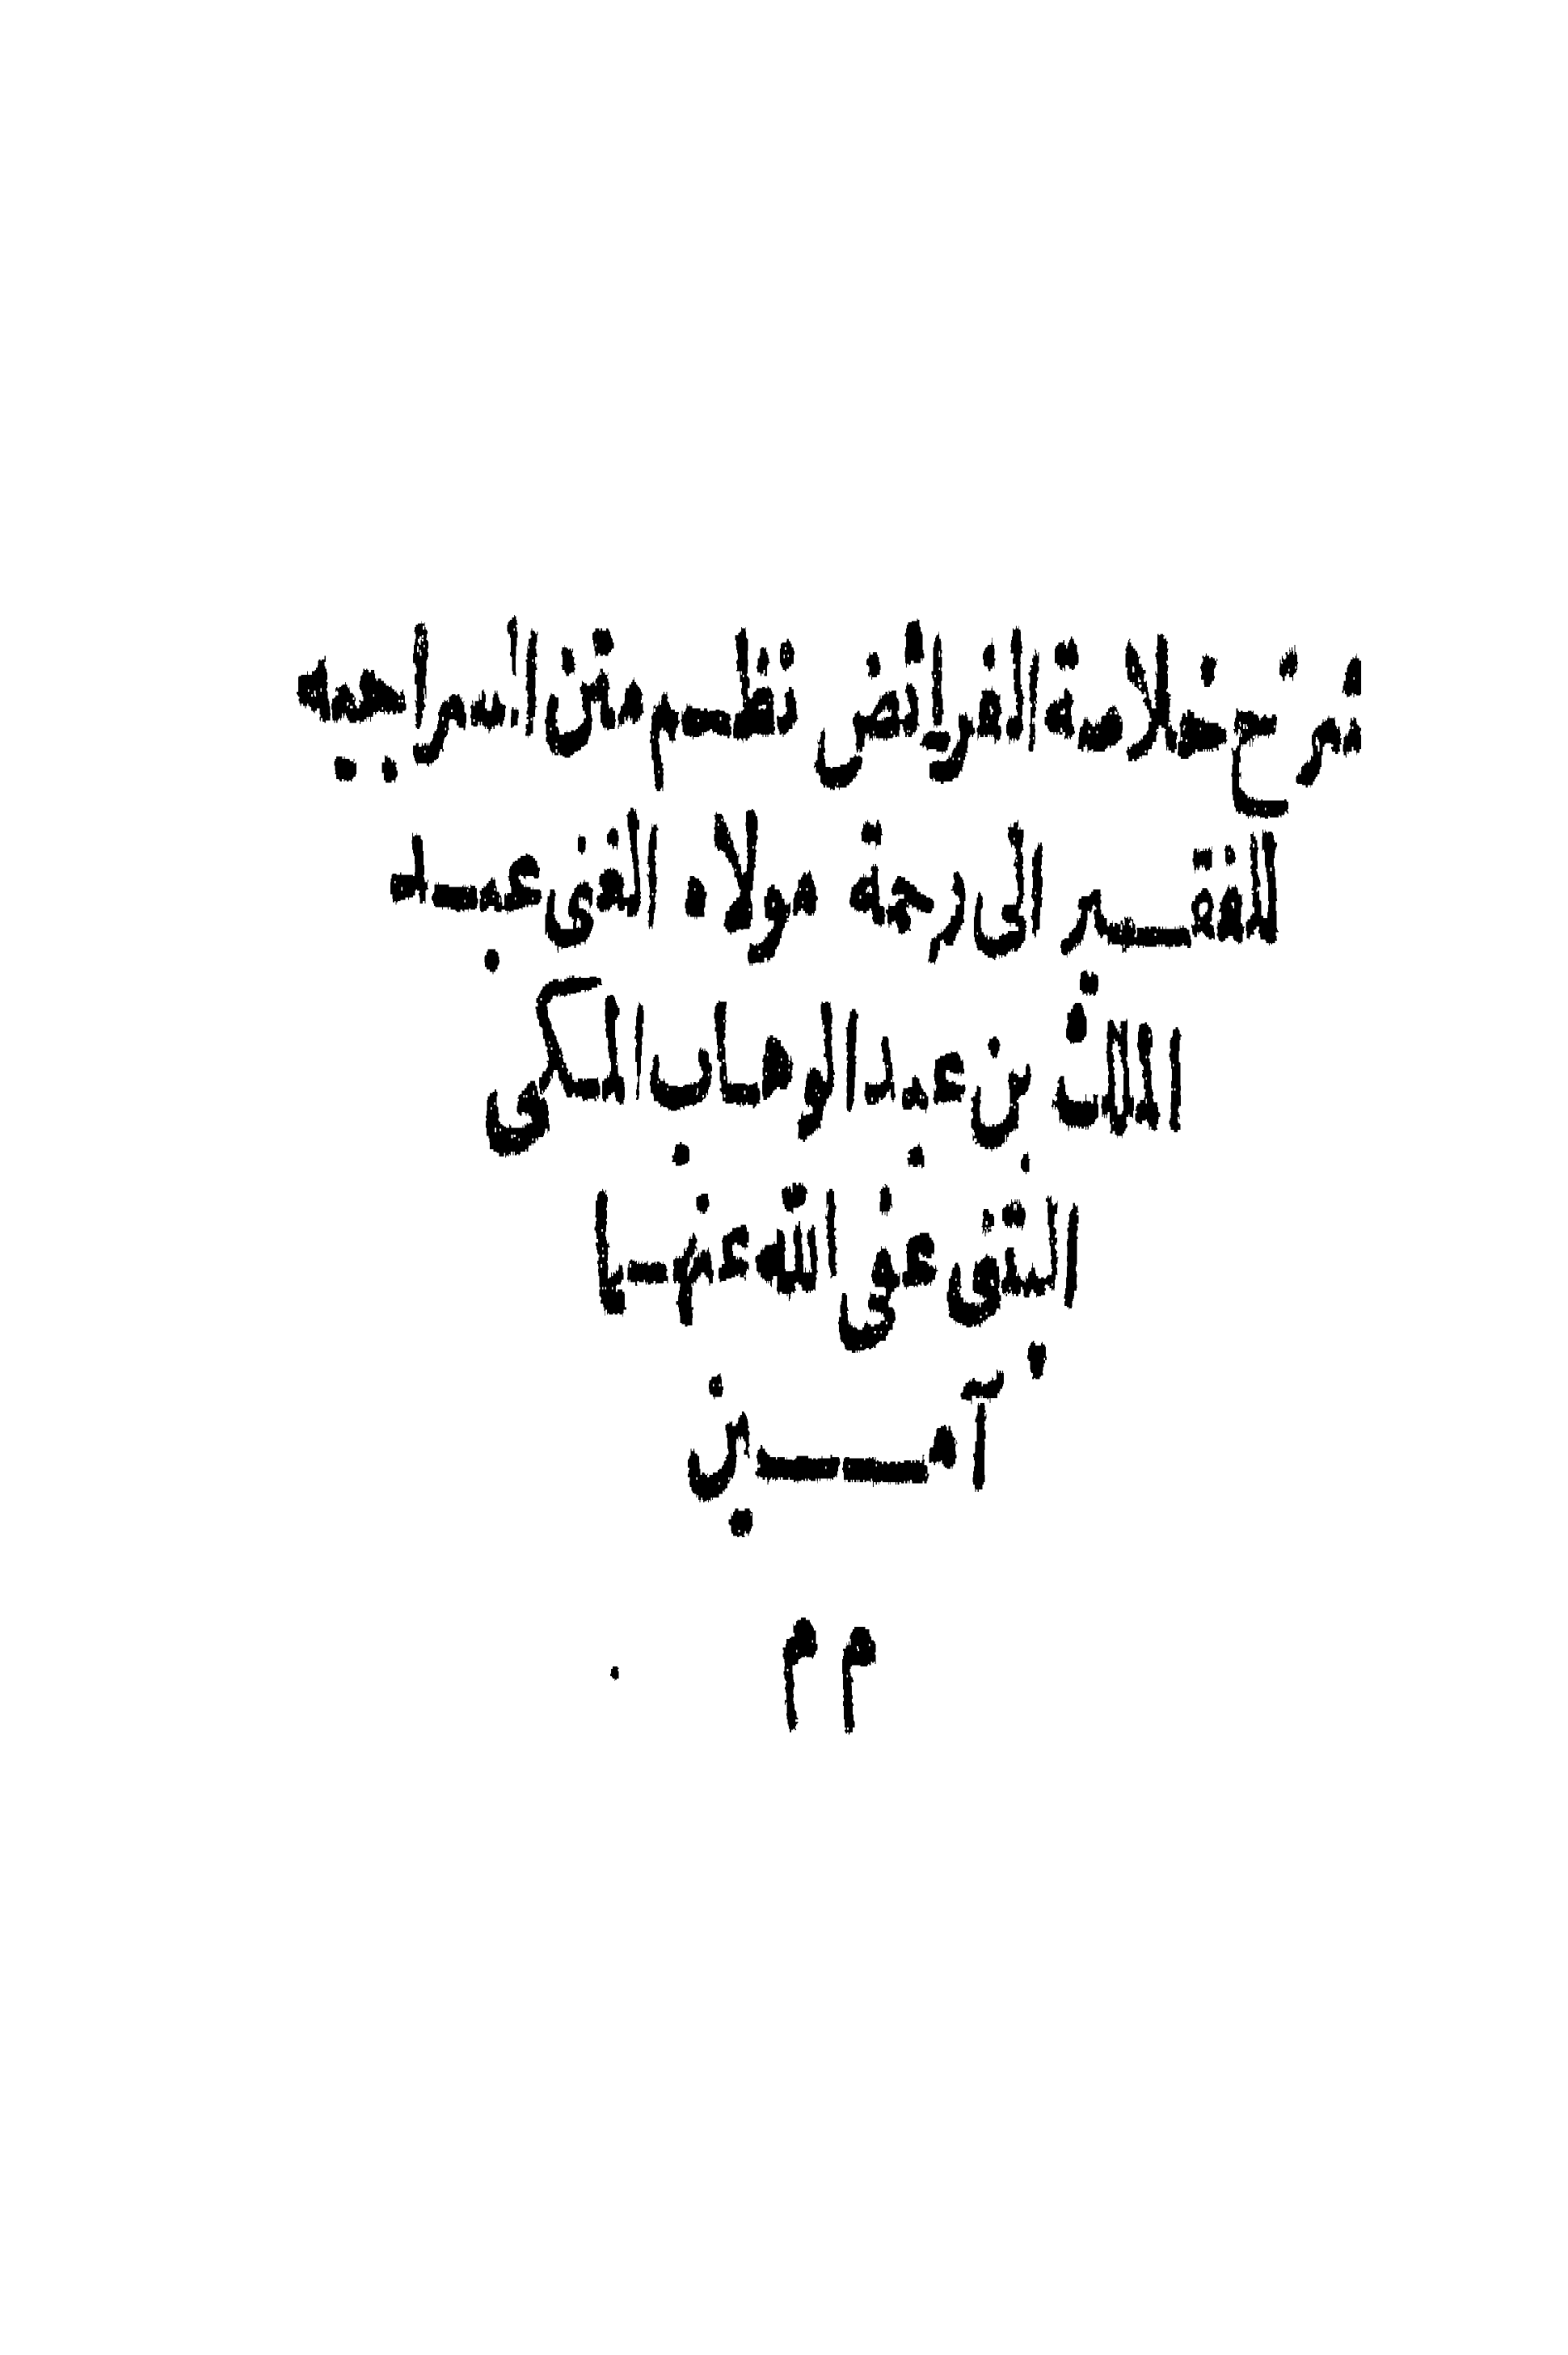 شرح خلاصة الفرائض نظم متن السراجيه
للفقير الى رحمة مولاه الغنى عبد
الملك بن عبد الوهاب المكى
البتنى عفى الله عنهما
آمين
م م